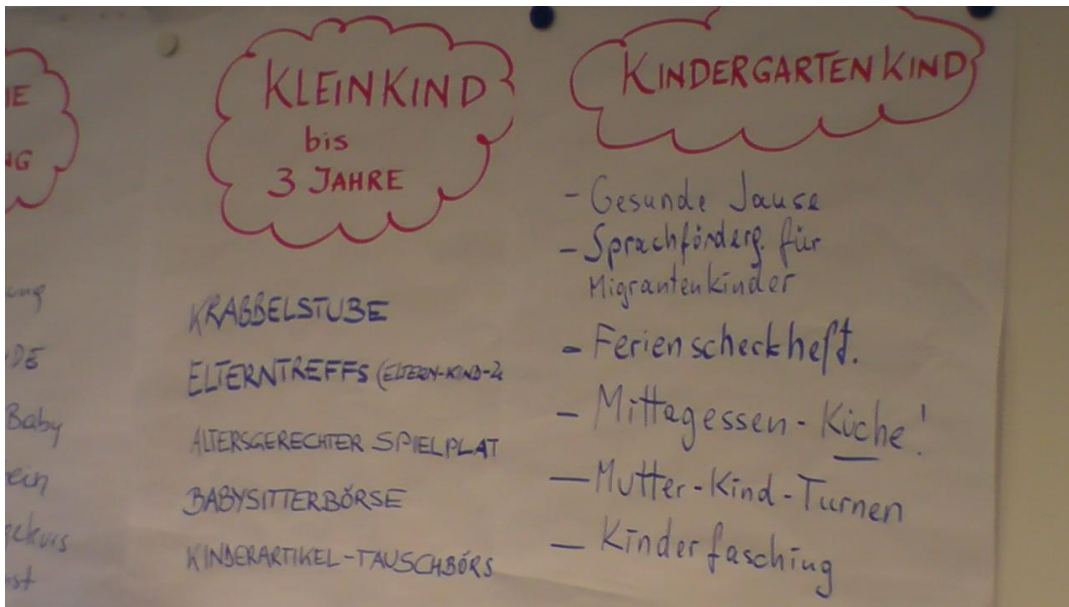 KLEINKIND
bis
3 JAHRE
KRABBELSTUBE
ELTERNTREFFS (ELTERN-KIND-Z
ALTERSGERECHTER SPIELPLAT
BABYSITTERBÖRSE
KINDERARTIKEL-TAUSCHBÖRS
KINDERGARTENKIND
- Gesunde Jause
- Sprachförderg. für
Migrantenkinder
- Ferienscheckheft.
- Mittagessen - Küche!
- Mutter-Kind-Turnen
- Kinderfasching
IE
NG
ung
DE
Baby
ein
ekurs
st